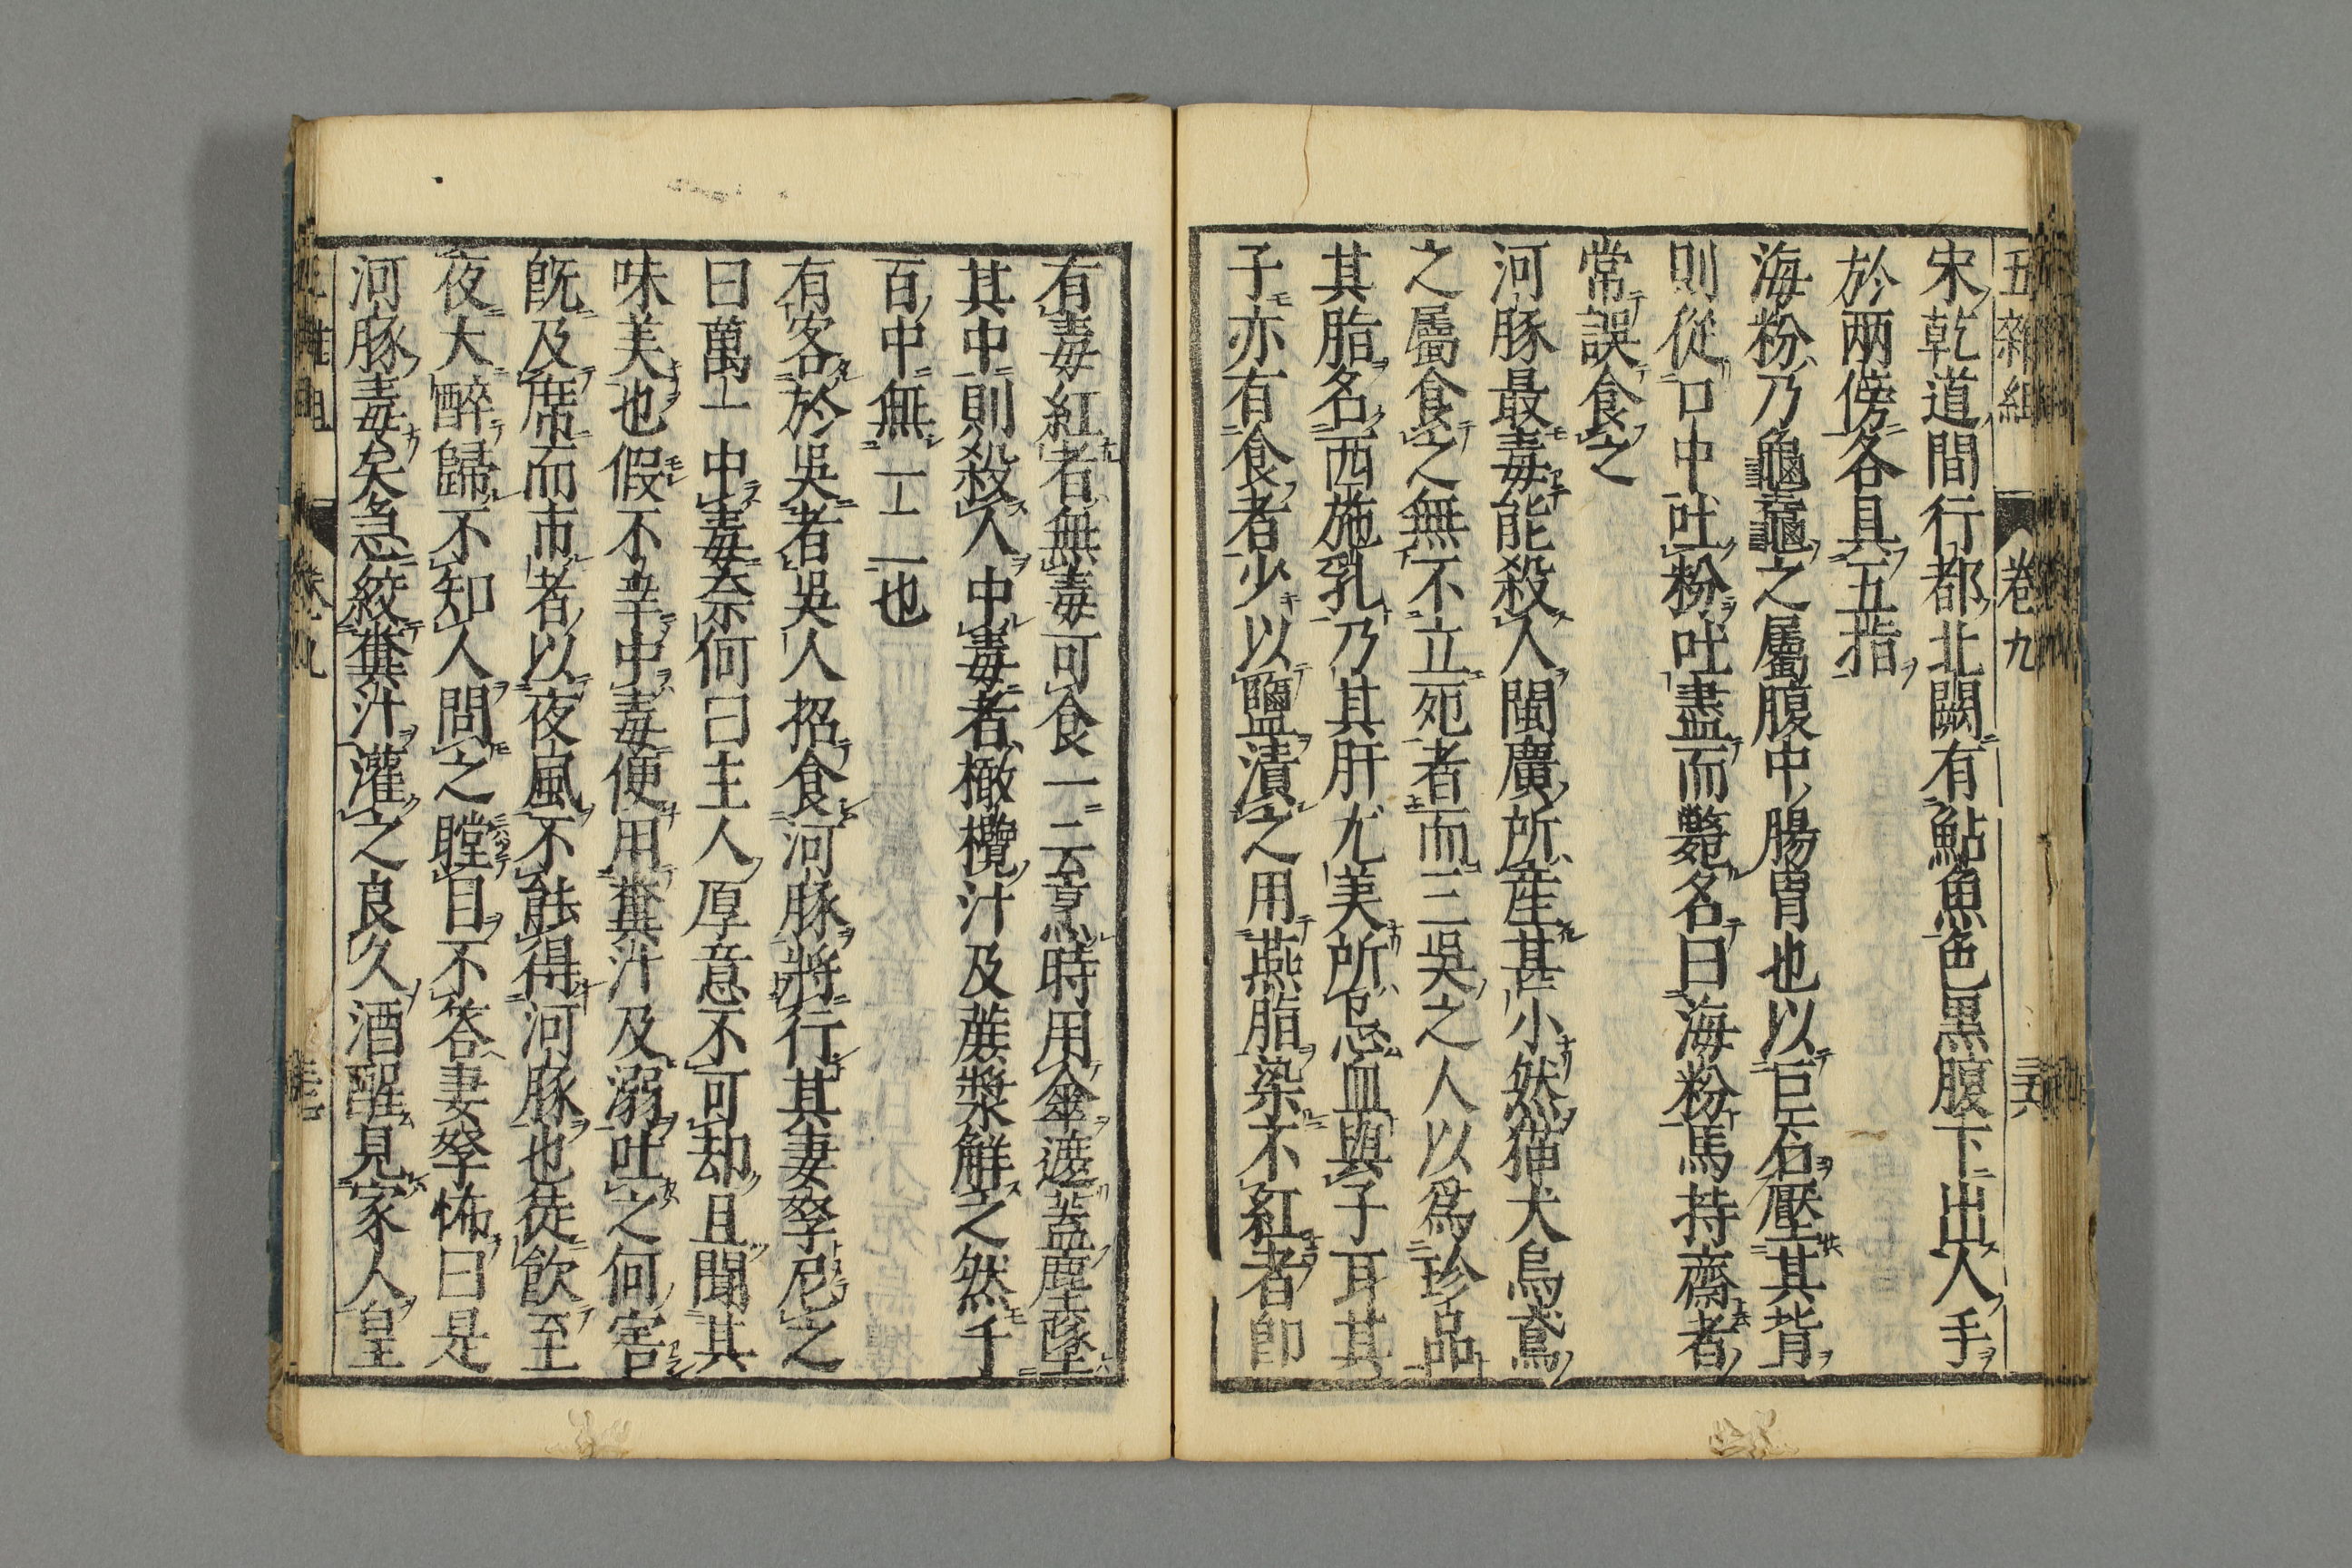 五雜組 卷九 三六
宋乾道間行都北闕有鮎魚色黒腹下出人手
於兩傍各具五指
海粉乃龜黿之屬腹中腸胃也以巨石壓其背
則從口中吐粉吐盡而斃名曰海粉馬持齋者
常誤食之
河豚最毒能殺人閩廣所産甚小然猫犬烏鳶
之屬食之無不立死者而三吳之人以爲珍品
其脂名西施乳乃其肝尤美所忌血與子耳其
子亦有食者少以鹽漬之用燕脂染不紅者即
有毒紅者無毒可食一云烹時用傘遮蓋塵墜
其中則殺人中毒者橄欖汁及蔗漿解之然千
百中無一二也
有客於吳者吳人招食河豚將行其妻孥尼之
曰萬一中毒奈何曰主人厚意不可却且聞其
味美也假不幸中毒便用糞汁及溺吐之何害
既及席而市者以夜風不能得河豚也徒飲至
夜大醉歸不知人問之瞠目不答妻孥怖曰是
河豚毒矣急絞糞汁灌之良久酒醒見家人皇